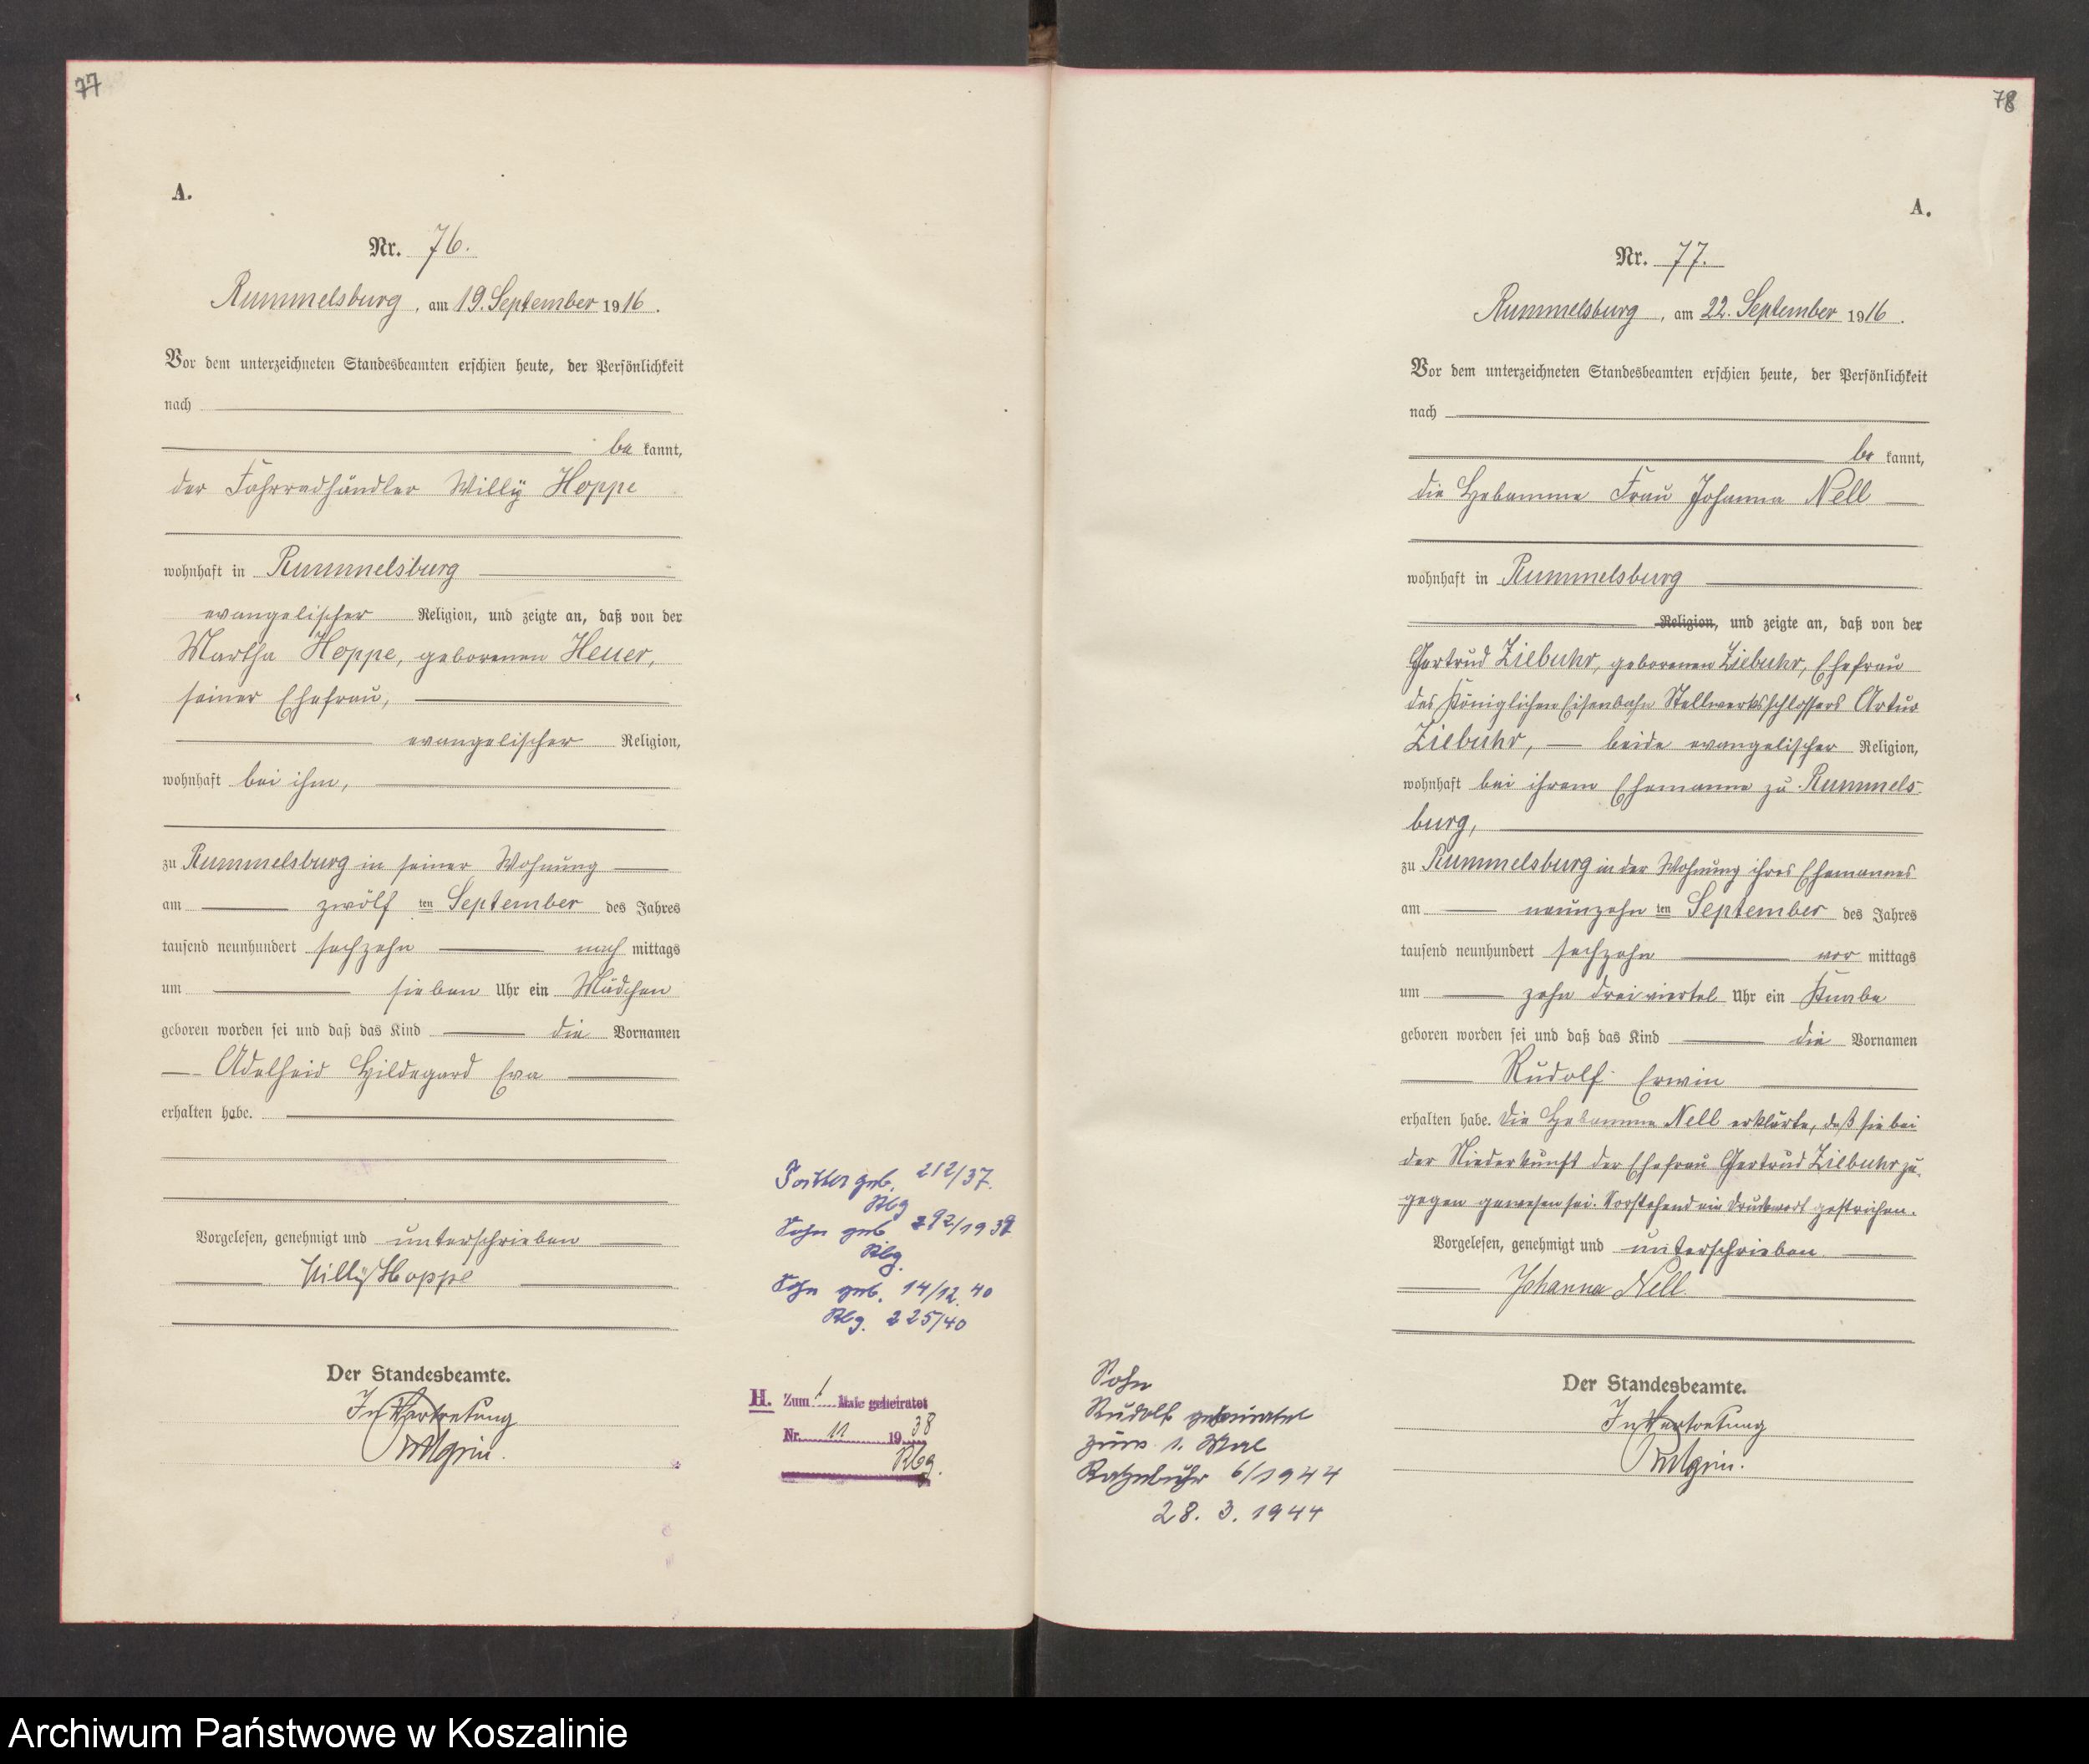 77
A.
Nr. 76.
Rummelsburg, am 19. September 1916.
Vor dem unterzeichneten Standesbeamten erschien heute, der Persönlichkeit
nach
be kannt,
der Fahrradhändler Willy Hoppe
wohnhaft in Rummelsburg
evangelischer Religion, und zeigte an, daß von der
Martha Hoppe, geborenen Heuer,
seiner Ehefrau,
evangelischer Religion,
wohnhaft bei ihm,
zu Rummelsburg in seiner Wohnung
am zwölf ten September des Jahres
tausend neunhundert sechzehn nach mittags
um sieben Uhr ein Mädchen
geboren worden sei und daß das Kind die Vornamen
Adelheid Hildegard Eva
erhalten habe.
Vorgelesen, genehmigt und unterschrieben
Willy Hoppe
Der Standesbeamte.
In Vertretung
geb. 212/37.
Rbg
Sohn geb 292/1939
Rbg.
Sohn geb. 14/12. 40
Rbg. 225/40
H. Zum 1 Male geheiratet
Nr. 11 1938
Rbg.
78
A.
Nr. 77.
Rummelsburg, am 22. September 1916.
Vor dem unterzeichneten Standesbeamten erschien heute, der Persönlichkeit
nach
be kannt,
die Hebamme Frau Johanna Nell
wohnhaft in Rummelsburg
Religion, und zeigte an, daß von der
Gertrud Ziebuhr, geborenen Ziebuhr, Ehefrau
des Königlichen Eisenbahn Stellwerksschlossers Artur
Ziebuhr, beide evangelischer Religion,
wohnhaft bei ihrem Ehemanne zu Rummels-
burg,
zu Rummelsburg in der Wohnung ihres Ehemannes
am neunzehn ten September des Jahres
tausend neunhundert sechzehn vor mittags
um zehn dreiviertel Uhr ein Knabe
geboren worden sei und daß das Kind die Vornamen
Rudolf Erwin
erhalten habe. Die Hebamme Nell erklärte, daß sie bei
der Niederkunft der Ehefrau Gertrud Ziebuhr zu-
gegen gewesen sei. Vorstehend ein Druckwort gestrichen.
Vorgelesen, genehmigt und unterschrieben
Johanna Nell.
Der Standesbeamte.
In Vertretung
Sohn
Rudolf geheiratet
zum 1. Mal
Ratzebuhr 6/1944
28. 3. 1944
Archiwum Państwowe w Koszalinie